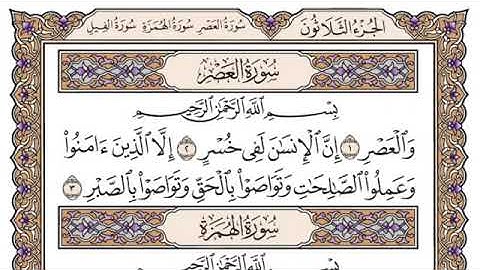 الجزء الثلاثون سورة العصر سورة الهمزة سورة الفيل
سُورَةُ العَصْرِ
بِسْمِ ٱللَّهِ ٱلرَّحْمَٰنِ ٱلرَّحِيمِ
وَٱلْعَصْرِ ١ إِنَّ ٱلْإِنسَٰنَ لَفِى خُسْرٍ ٢ إِلَّا ٱلَّذِينَ ءَامَنُوا۟
وَعَمِلُوا۟ ٱلصَّٰلِحَٰتِ وَتَوَاصَوْا۟ بِٱلْحَقِّ وَتَوَاصَوْا۟ بِٱلصَّبْرِ ٣
سُورَةُ الهُمَزَةِ
بِسْمِ ٱللَّهِ ٱلرَّحْمَٰنِ ٱلرَّحِيمِ